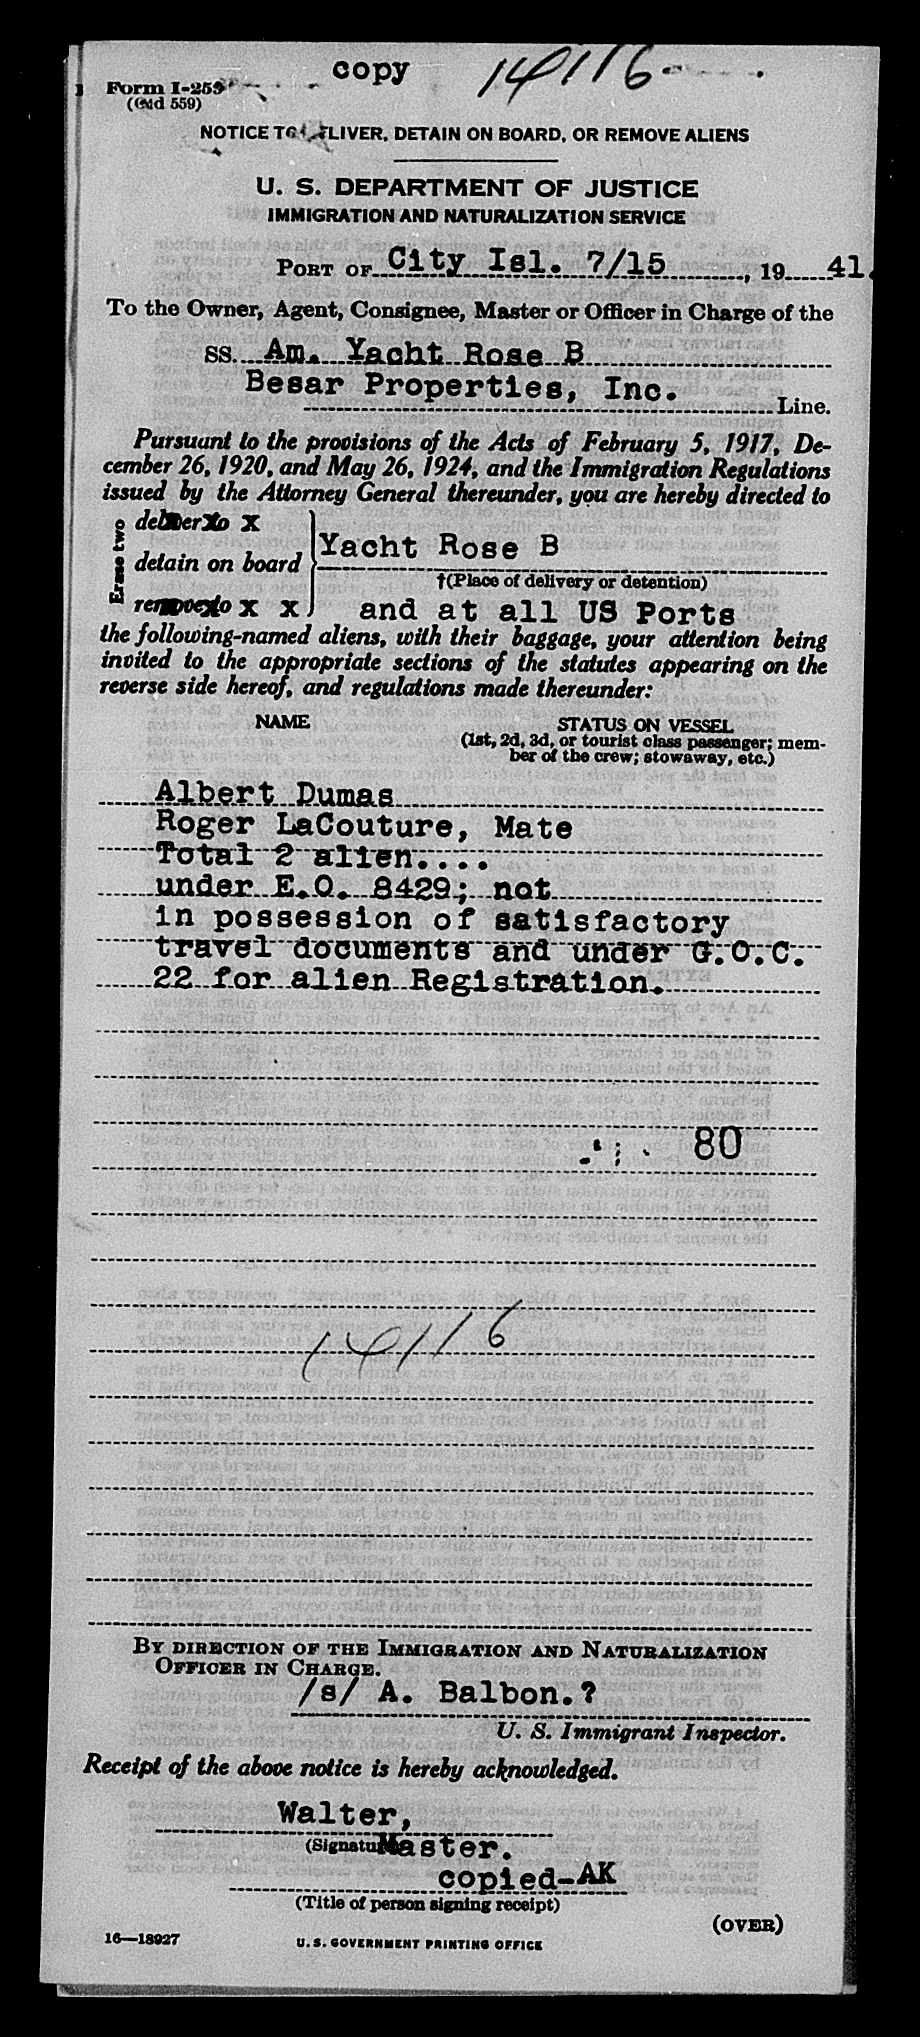 copy 14116
Form I-259
(Old 559)
NOTICE TO DELIVER, DETAIN ON BOARD, OR REMOVE ALIENS
U. S. DEPARTMENT OF JUSTICE
IMMIGRATION AND NATURALIZATION SERVICE
PORT OF City Isl. 7/15, 19 41.
To the Owner, Agent, Consignee, Master or Officer in Charge of the
SS. Am. Yacht Rose B
Besar Properties, Inc.
Line.
Pursuant to the provisions of the Acts of February 5, 1917, De-
cember 26, 1920, and May 26, 1924, and the Immigration Regulations
issued by the Attorney General thereunder, you are hereby directed to
Erase two
deliver to x
detain on board
Yacht Rose B
†(Place of delivery or detention)
remove to x x and at all US Ports
the following-named aliens, with their baggage, your attention being
invited to the appropriate sections of the statutes appearing on the
reverse side hereof, and regulations made thereunder:
NAME STATUS ON VESSEL
(1st, 2d, 3d, or tourist class passenger; mem-
ber of the crew; stowaway, etc.)
Albert Dumas
Roger LaCouture, Mate
Total 2 alien....
under E.O. 8429; not
in possession of satisfactory
travel documents and under G.O.C.
22 for alien Registration.
80
14116
BY DIRECTION OF THE IMMIGRATION AND NATURALIZATION
OFFICER IN CHARGE.
/s/ A. Balbon.?
U. S. Immigrant Inspector.
Receipt of the above notice is hereby acknowledged.
Walter,
(Signature) Master.
copied-AK
(Title of person signing receipt)
(OVER)
16—18927 U. S. GOVERNMENT PRINTING OFFICE